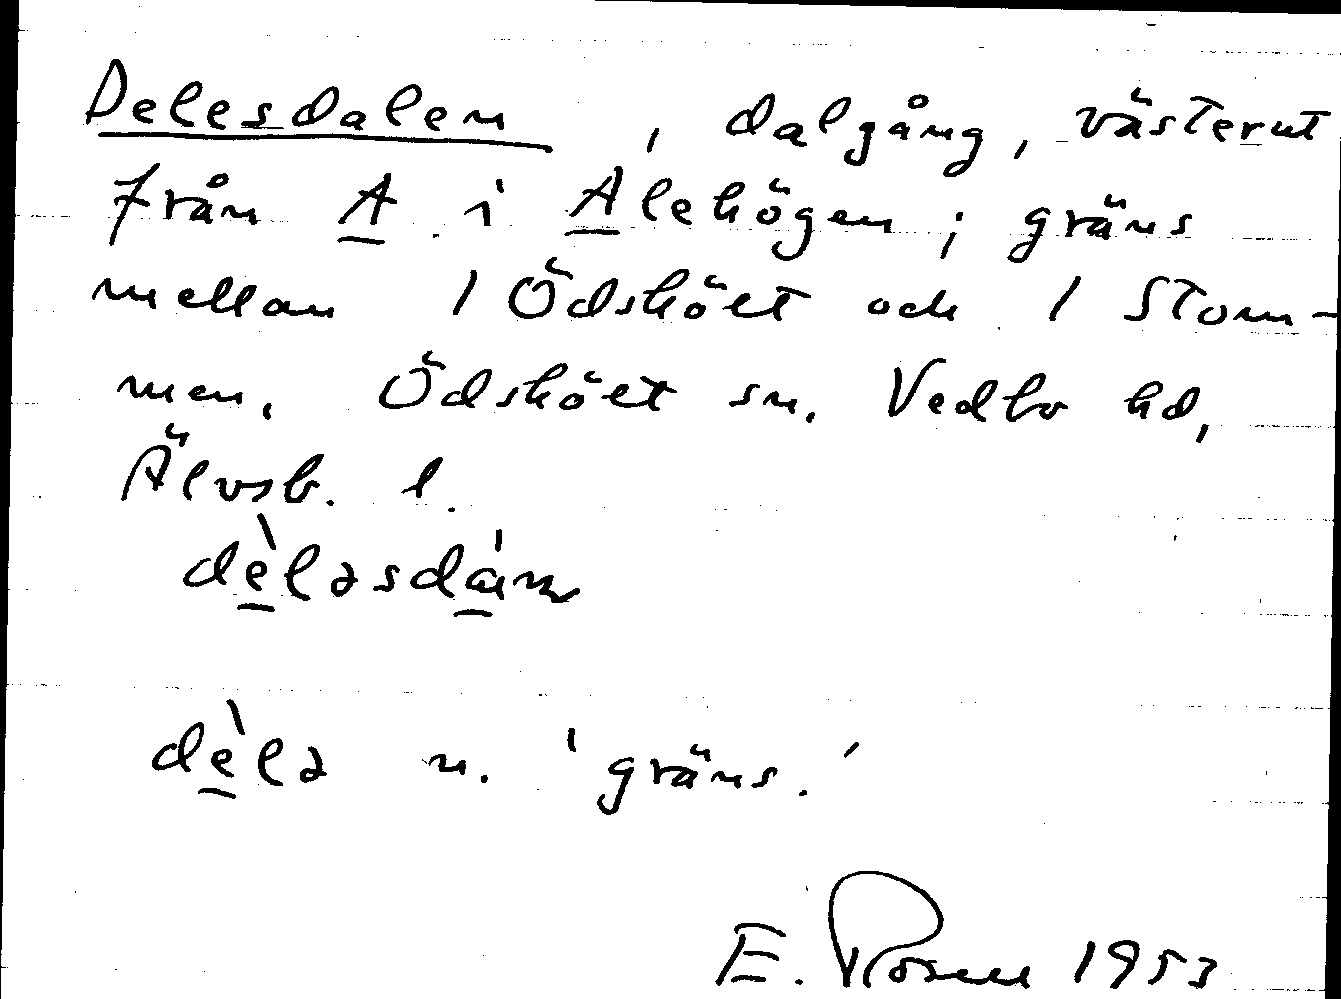 Delesdalen , dalgång, västerut
från A i Alehögen; gräns
mellan 1 Ödsköĺt och 1 Stom-
men. Ödskölt sn. Vedbo hd,
Älvsb. l.
dè̱ləsdá̱ɪn
dè̱lə n. 'gräns.'
E. Rosell 1953